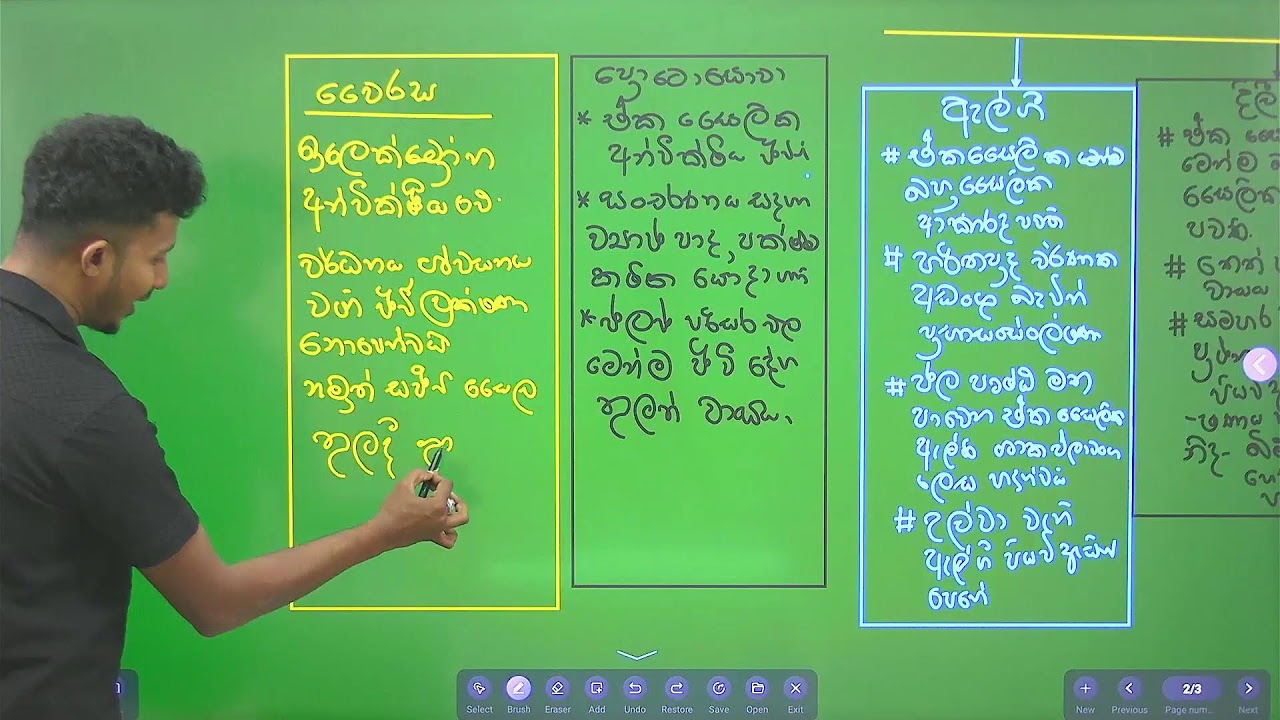 වෛරස
ඉලෙක්ට්‍රෝන
අන්වීක්ෂීය වේ.
වර්ධනය ශ්වසනය
වගේ ජීවී ලක්ෂණ
නොපෙන්වයි
නමුත් සජීවී සෛල
තුලදී
ප්‍රොටොසෝවා
* ඒක සෛලික
අන්වීක්ෂීය ජීවීන්
* සංචරණය සදහා
ව්‍යාජ පාද, පක්ෂ්ම
කශිකා යොදාගනී
* ජලජ පරිසර වල
මෙන්ම ජීවී දේහ
තුලත් වාසය.
ඇල්ගී
# ඒකසෛලික හෝ
බහු සෛලික
ආකාරද පවතී
# හරිතප්‍රද වර්ණක
අඩංගු බැවින්
ප්‍රභාසංස්ලේෂණ
# ජල පෘෂ්ඨ මත
පාවෙන ඒක සෛලික
ඇල්ගී ශාක ප්ලවාංග
ලෙස හඳුන්වයි
# උල්වා වැනි
ඇල්ගී පියවි ඇසින්
පෙනේ
# ඒක
මෙන්ම
සෛලික
පවතී.
# තෙත්
වාසය
# සමහර
පියවි
නිද-
Select Brush Eraser Add Undo Restore Save Open Exit
New Previous 2/3 Page num... Next